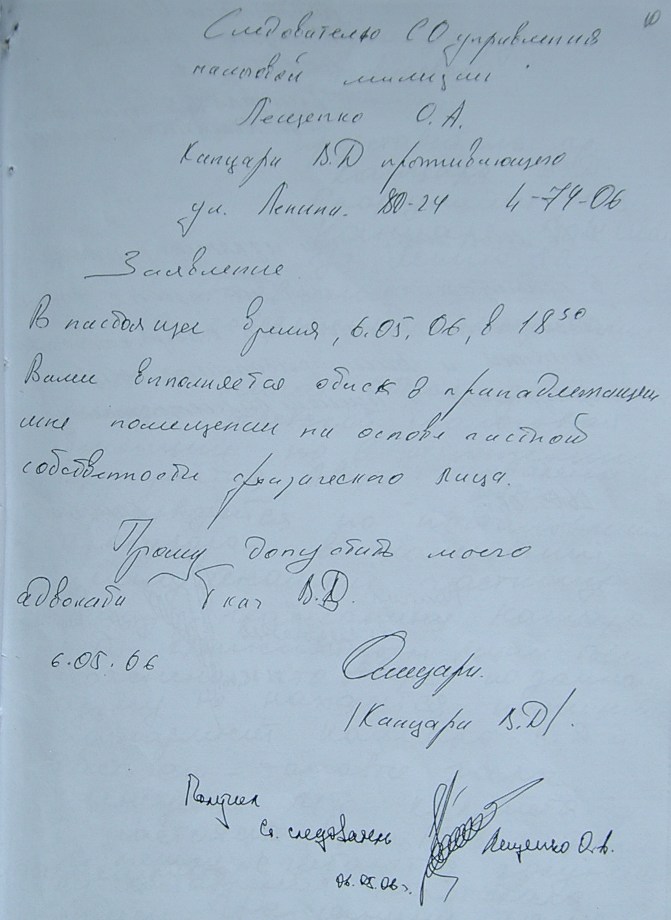 10
Следователю СО управления
налоговой милиции
Лещенко О.А.
Канцари В.Д проживающего
ул. Ленина. 80-24 4-74-06
Заявление
В настоящее время, 6.05.06, в 18 50
Вами выполняется обыск в принадлежащем
мне помещении на основе частной
собственности физического лица.
Прошу допустить моего
адвоката Ткач В.Д.
6.05.06
/Канцари В.Д/.
Получил
Ст. следователь Лещенко О.А.
06.05.06 г.